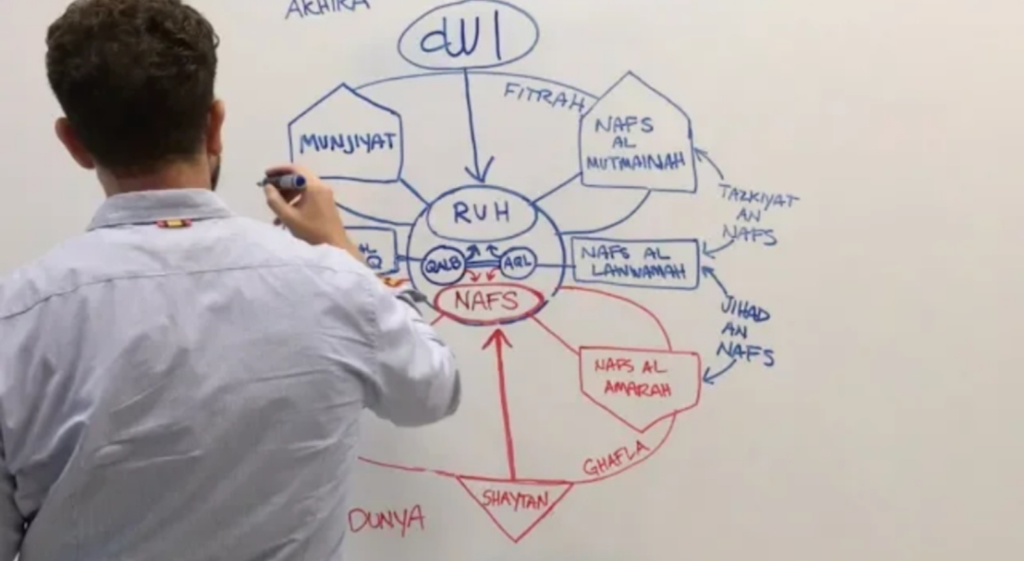 AKHIRA
الله
FITRAH
MUNJIYAT
NAFS
AL
MUTMAINAH
TAZKIYAT
AN
NAFS
RUH
QALB
AQL
NAFS AL
LAWWAMAH
NAFS
JIHAD
AN
NAFS
NAFS AL
AMARAH
GHAFLA
SHAYTAN
DUNYA